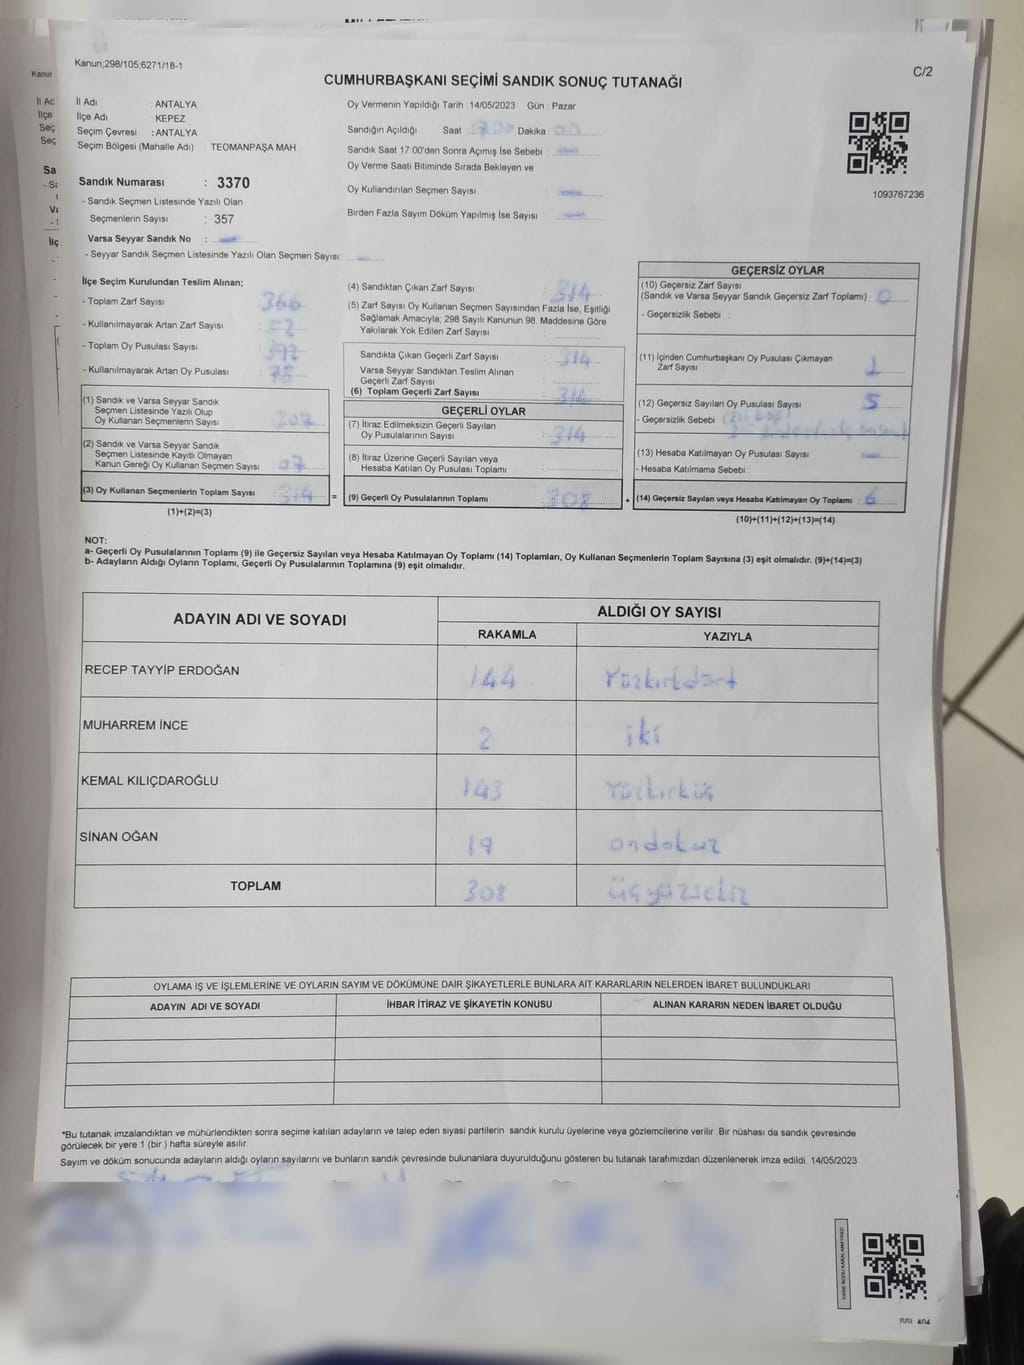 Kanun;298/105;6271/18-1
C/2
CUMHURBAŞKANI SEÇİMİ SANDIK SONUÇ TUTANAĞI
İl Adı : ANTALYA
İlçe Adı : KEPEZ
Seçim Çevresi : ANTALYA
Seçim Bölgesi (Mahalle Adı) : TEOMANPAŞA MAH
Sandık Numarası : 3370
- Sandık Seçmen Listesinde Yazılı Olan
Seçmenlerin Sayısı : 357
Varsa Seyyar Sandık No :
- Seyyar Sandık Seçmen Listesinde Yazılı Olan Seçmen Sayısı:
Oy Vermenin Yapıldığı Tarih :14/05/2023 Gün : Pazar
Sandığın Açıldığı Saat : Dakika :
Sandık Saat 17:00'den Sonra Açımış İse Sebebi :
Oy Verme Saati Bitiminde Sırada Bekleyen ve
Oy Kullandırılan Seçmen Sayısı :
Birden Fazla Sayım Döküm Yapılmış İse Sayısı :
1093767236
İlçe Seçim Kurulundan Teslim Alınan;
- Toplam Zarf Sayısı : 366
- Kullanılmayarak Artan Zarf Sayısı :
- Toplam Oy Pusulası Sayısı : 392
- Kullanılmayarak Artan Oy Pusulası : 78
(1) Sandık ve Varsa Seyyar Sandık
Seçmen Listesinde Yazılı Olup
Oy Kullanan Seçmenlerin Sayısı : 307
(2) Sandık ve Varsa Seyyar Sandık
Seçmen Listesinde Kayıtlı Olmayan
Kanun Gereği Oy Kullanan Seçmen Sayısı : 07
(3) Oy Kullanan Seçmenlerin Toplam Sayısı : 314
(1)+(2)=(3)
=
(4) Sandıktan Çıkan Zarf Sayısı : 314
(5) Zarf Sayısı Oy Kullanan Seçmen Sayısından Fazla İse, Eşitliği
Sağlamak Amacıyla; 298 Sayılı Kanunun 98. Maddesine Göre
Yakılarak Yok Edilen Zarf Sayısı :
Sandıkta Çıkan Geçerli Zarf Sayısı : 314
Varsa Seyyar Sandıktan Teslim Alınan
Geçerli Zarf Sayısı :
(6) Toplam Geçerli Zarf Sayısı : 314
GEÇERLİ OYLAR
(7) İtiraz Edilmeksizin Geçerli Sayılan
Oy Pusulalarının Sayısı : 314
(8) İtiraz Üzerine Geçerli Sayılan veya
Hesaba Katılan Oy Pusulası Toplamı :
(9) Geçerli Oy Pusulalarının Toplamı : 308
+
GEÇERSİZ OYLAR
(10) Geçersiz Zarf Sayısı
(Sandık ve Varsa Seyyar Sandık Geçersiz Zarf Toplamı) : 0
- Geçersizlik Sebebi :
(11) İçinden Cumhurbaşkanı Oy Pusulası Çıkmayan
Zarf Sayısı : 1
(12) Geçersiz Sayılan Oy Pusulası Sayısı : 5
- Geçersizlik Sebebi
(13) Hesaba Katılmayan Oy Pusulası Sayısı :
- Hesaba Katılmama Sebebi :
(14) Geçersiz Sayılan veya Hesaba Katılmayan Oy Toplamı : 6
(10)+(11)+(12)+(13)=(14)
NOT:
a- Geçerli Oy Pusulalarının Toplamı (9) ile Geçersiz Sayılan veya Hesaba Katılmayan Oy Toplamı (14) Toplamları, Oy Kullanan Seçmenlerin Toplam Sayısına (3) eşit olmalıdır. (9)+(14)=(3)
b- Adayların Aldığı Oyların Toplamı, Geçerli Oy Pusulalarının Toplamına (9) eşit olmalıdır.
ADAYIN ADI VE SOYADI
ALDIĞI OY SAYISI
RAKAMLA YAZIYLA
RECEP TAYYİP ERDOĞAN 144 Yüzkırkdört
MUHARREM İNCE 2 iki
KEMAL KILIÇDAROĞLU 143 Yüzkırküç
SİNAN OĞAN 19 ondokuz
TOPLAM 308 üçyüzsekiz
OYLAMA İŞ VE İŞLEMLERİNE VE OYLARIN SAYIM VE DÖKÜMÜNE DAİR ŞİKAYETLERLE BUNLARA AİT KARARLARIN NELERDEN İBARET BULUNDUKLARI
ADAYIN ADI VE SOYADI İHBAR İTİRAZ VE ŞİKAYETİN KONUSU ALINAN KARARIN NEDEN İBARET OLDUĞU
*Bu tutanak imzalandıktan ve mühürlendikten sonra seçime katılan adayların ve talep eden siyasi partilerin sandık kurulu üyelerine veya gözlemcilerine verilir .Bir nüshası da sandık çevresinde
görülecek bir yere 1 (bir ) hafta süreyle asılır.
Sayım ve döküm sonucunda adayların aldığı oyların sayılarını ve bunların sandık çevresinde bulunanlara duyurulduğunu gösteren bu tutanak tarafımızdan düzenlenerek imza edildi. 14/05/2023